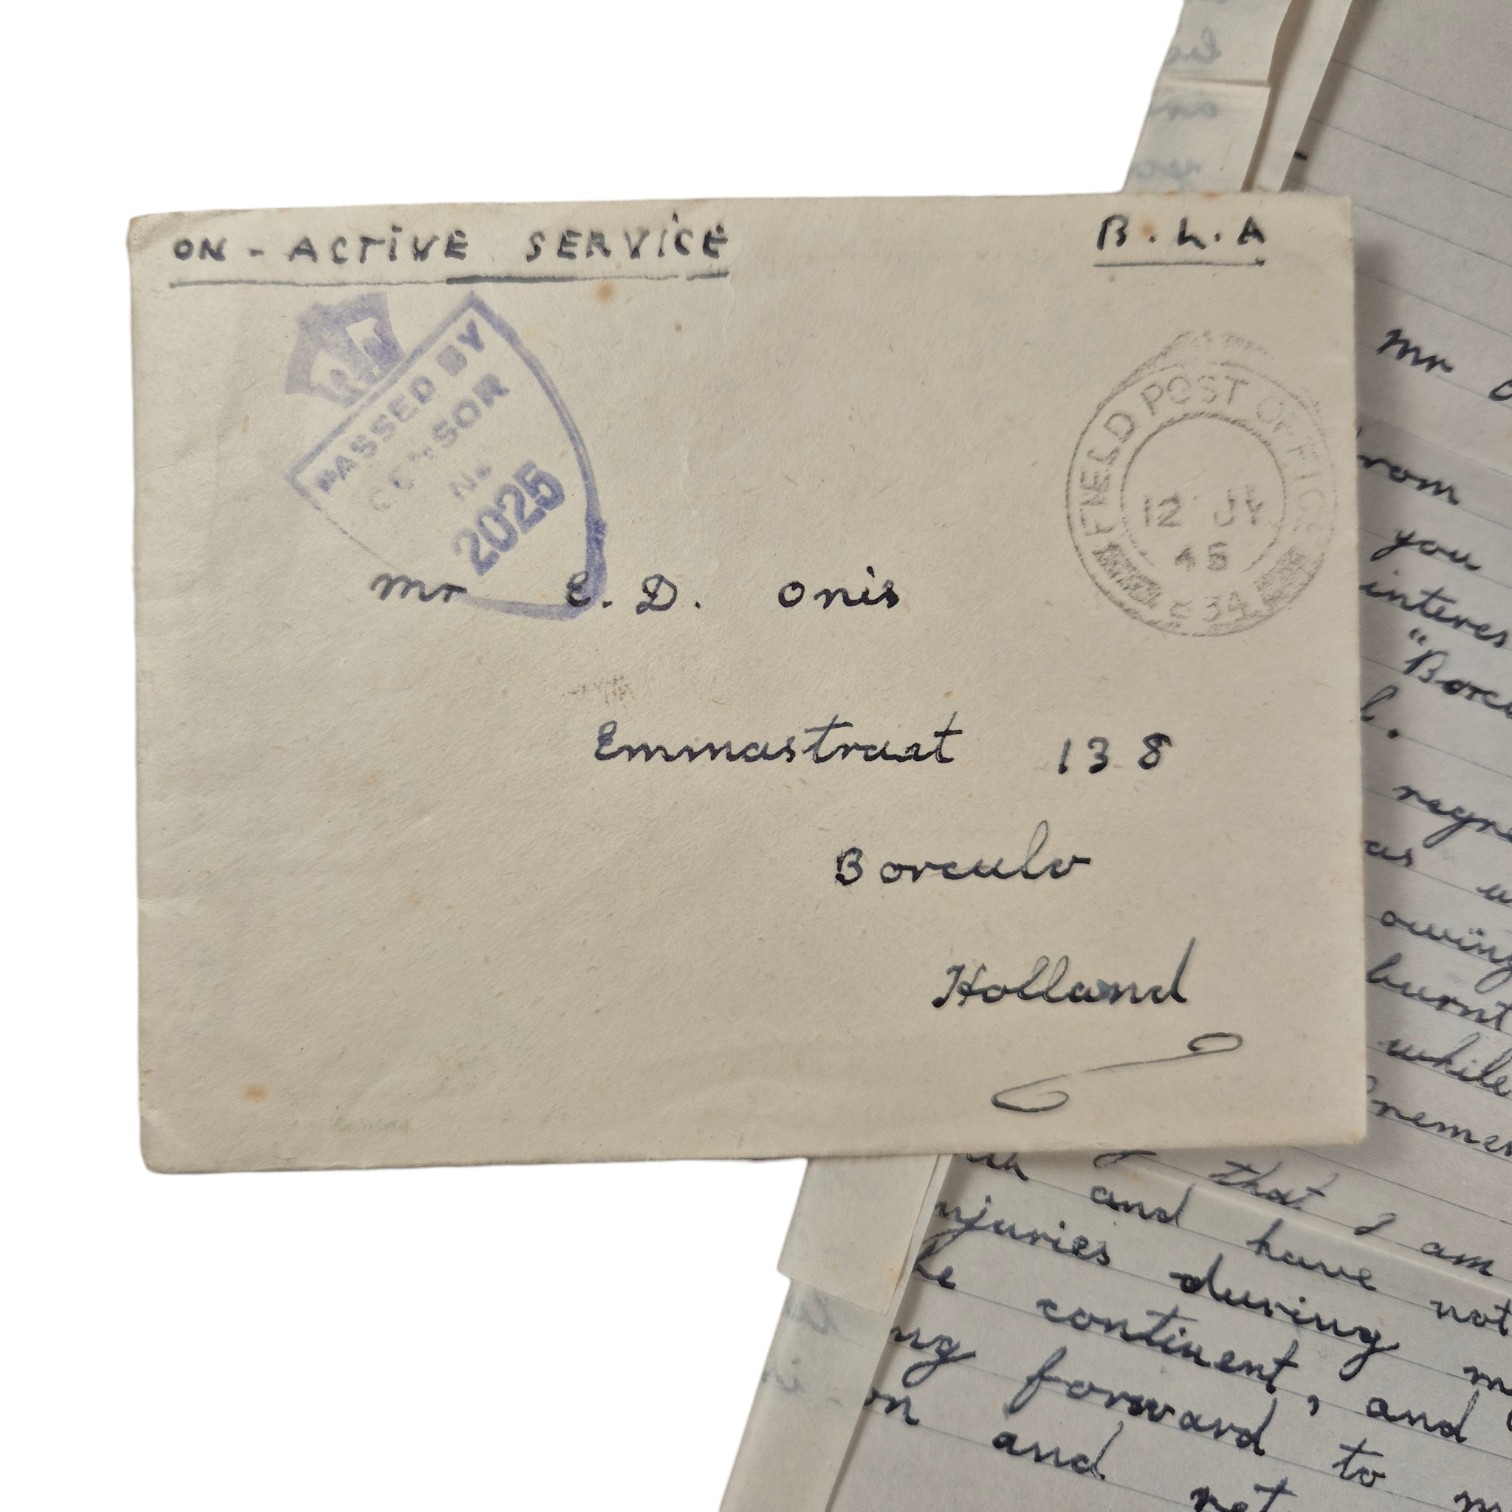 ON - ACTIVE SERVICE
B.L.A
PASSED BY
CENSOR
No
2025
FIELD POST OFFICE
12 JY
45
Mr E. D. Onis
Emmastraat 138
Borculo
Holland
Mr
from
you
"Borcu
as
owing
burnt
while
that I am
and have not
njuries during m
continent, and
ng forward to
on and ret